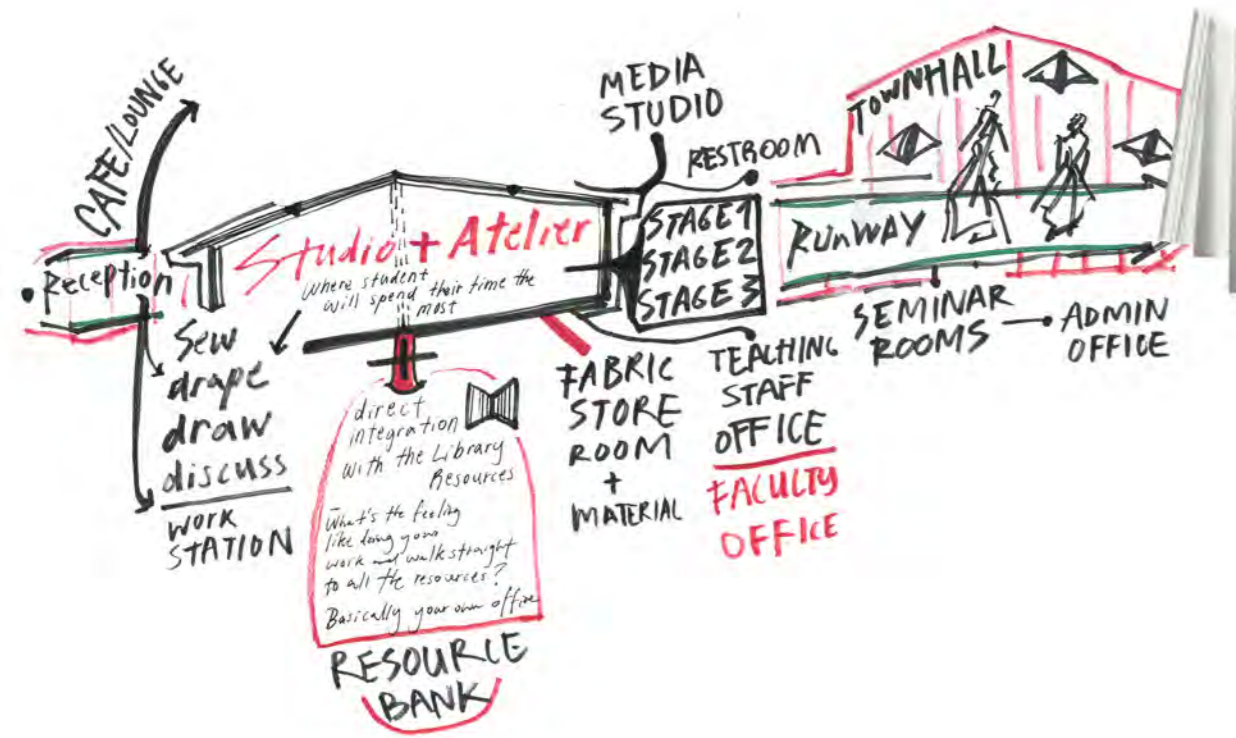 CAFE/LOUNGE
Reception
Sew
drape
draw
discuss
WORK
STATION
Studio + Atelier
Where student
will spend their time the
most
direct
integration
with the Library
Resources
What's the feeling
like doing your
work and walk straight
to all the resources?
Basically your own office
RESOURCE
BANK
FABRIC
STORE
ROOM
+
MATERIAL
MEDIA
STUDIO
RESTROOM
STAGE 1
STAGE 2
STAGE 3
TEACHING
STAFF
OFFICE
FACULTY
OFFICE
TOWNHALL
RUNWAY
SEMINAR
ROOMS
ADMIN
OFFICE